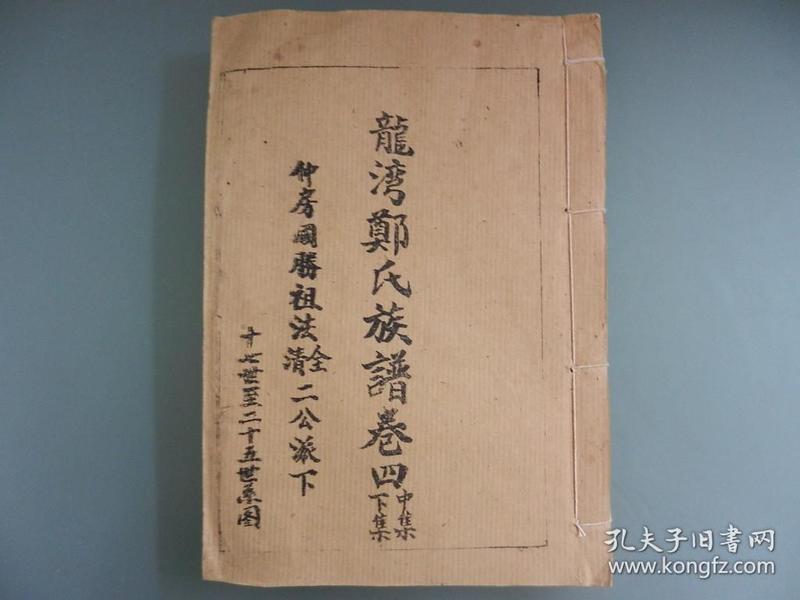 龍湾鄭氏族譜卷四中集下集
仲房國勝祖法全清二公派下
十七世至二十五世系图
孔夫子旧书网
www.kongfz.com